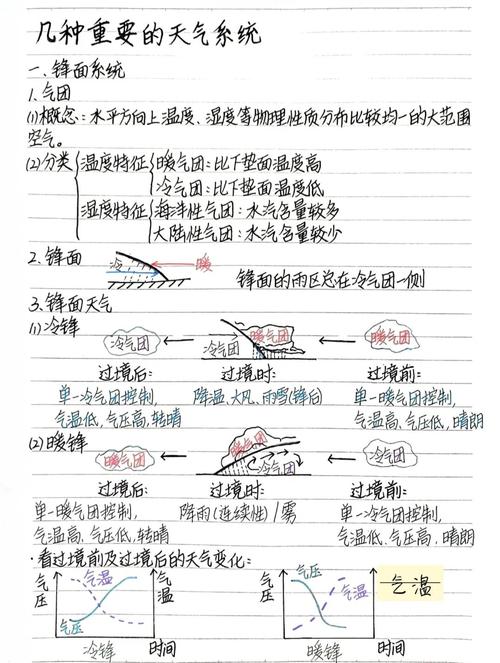 几种重要的天气系统
一、锋面系统
1.气团
(1)概念:水平方向上温度、湿度等物理性质分布比较均一的大范围
空气。
(2)分类 温度特征 暖气团:比下垫面温度高
冷气团:比下垫面温度低
湿度特征 海洋性气团:水汽含量较多
大陆性气团:水汽含量较少
2.锋面 冷 暖 锋面的雨区总在冷气团一侧
3.锋面天气
(1)冷锋
冷气团 冷气团 暖气团 暖气团
过境后: 过境时: 过境前:
单一冷气团控制, 降温、大风、雨雪(锋后) 单一暖气团控制,
气温低、气压高,转晴 气温高、气压低,晴朗
(2)暖锋
暖气团 暖气团 冷气团 冷气团
过境后: 过境时: 过境前:
单一暖气团控制, 降雨(连续性)/雾 单一冷气团控制,
气温高、气压低、转晴 气温低、气压高、晴朗
·看过境前及过境后的天气变化:
气压 气温 气温 气压 气压 气温
气压
冷锋 时间 暖锋 时间